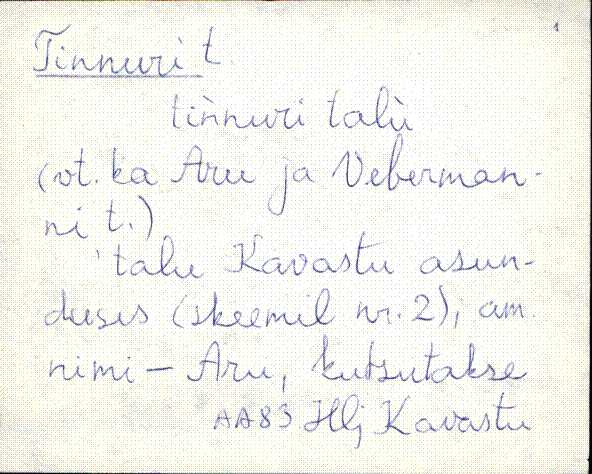 1
Tinnuri t.
tìnnuri talù
(vt. ka Aru ja Veberman-
ni t.)
talu Kavastu asun-
duses (skeemil nr. 2), am.
nimi – Aru, kutsutakse
AA83 Hlj Kavastu